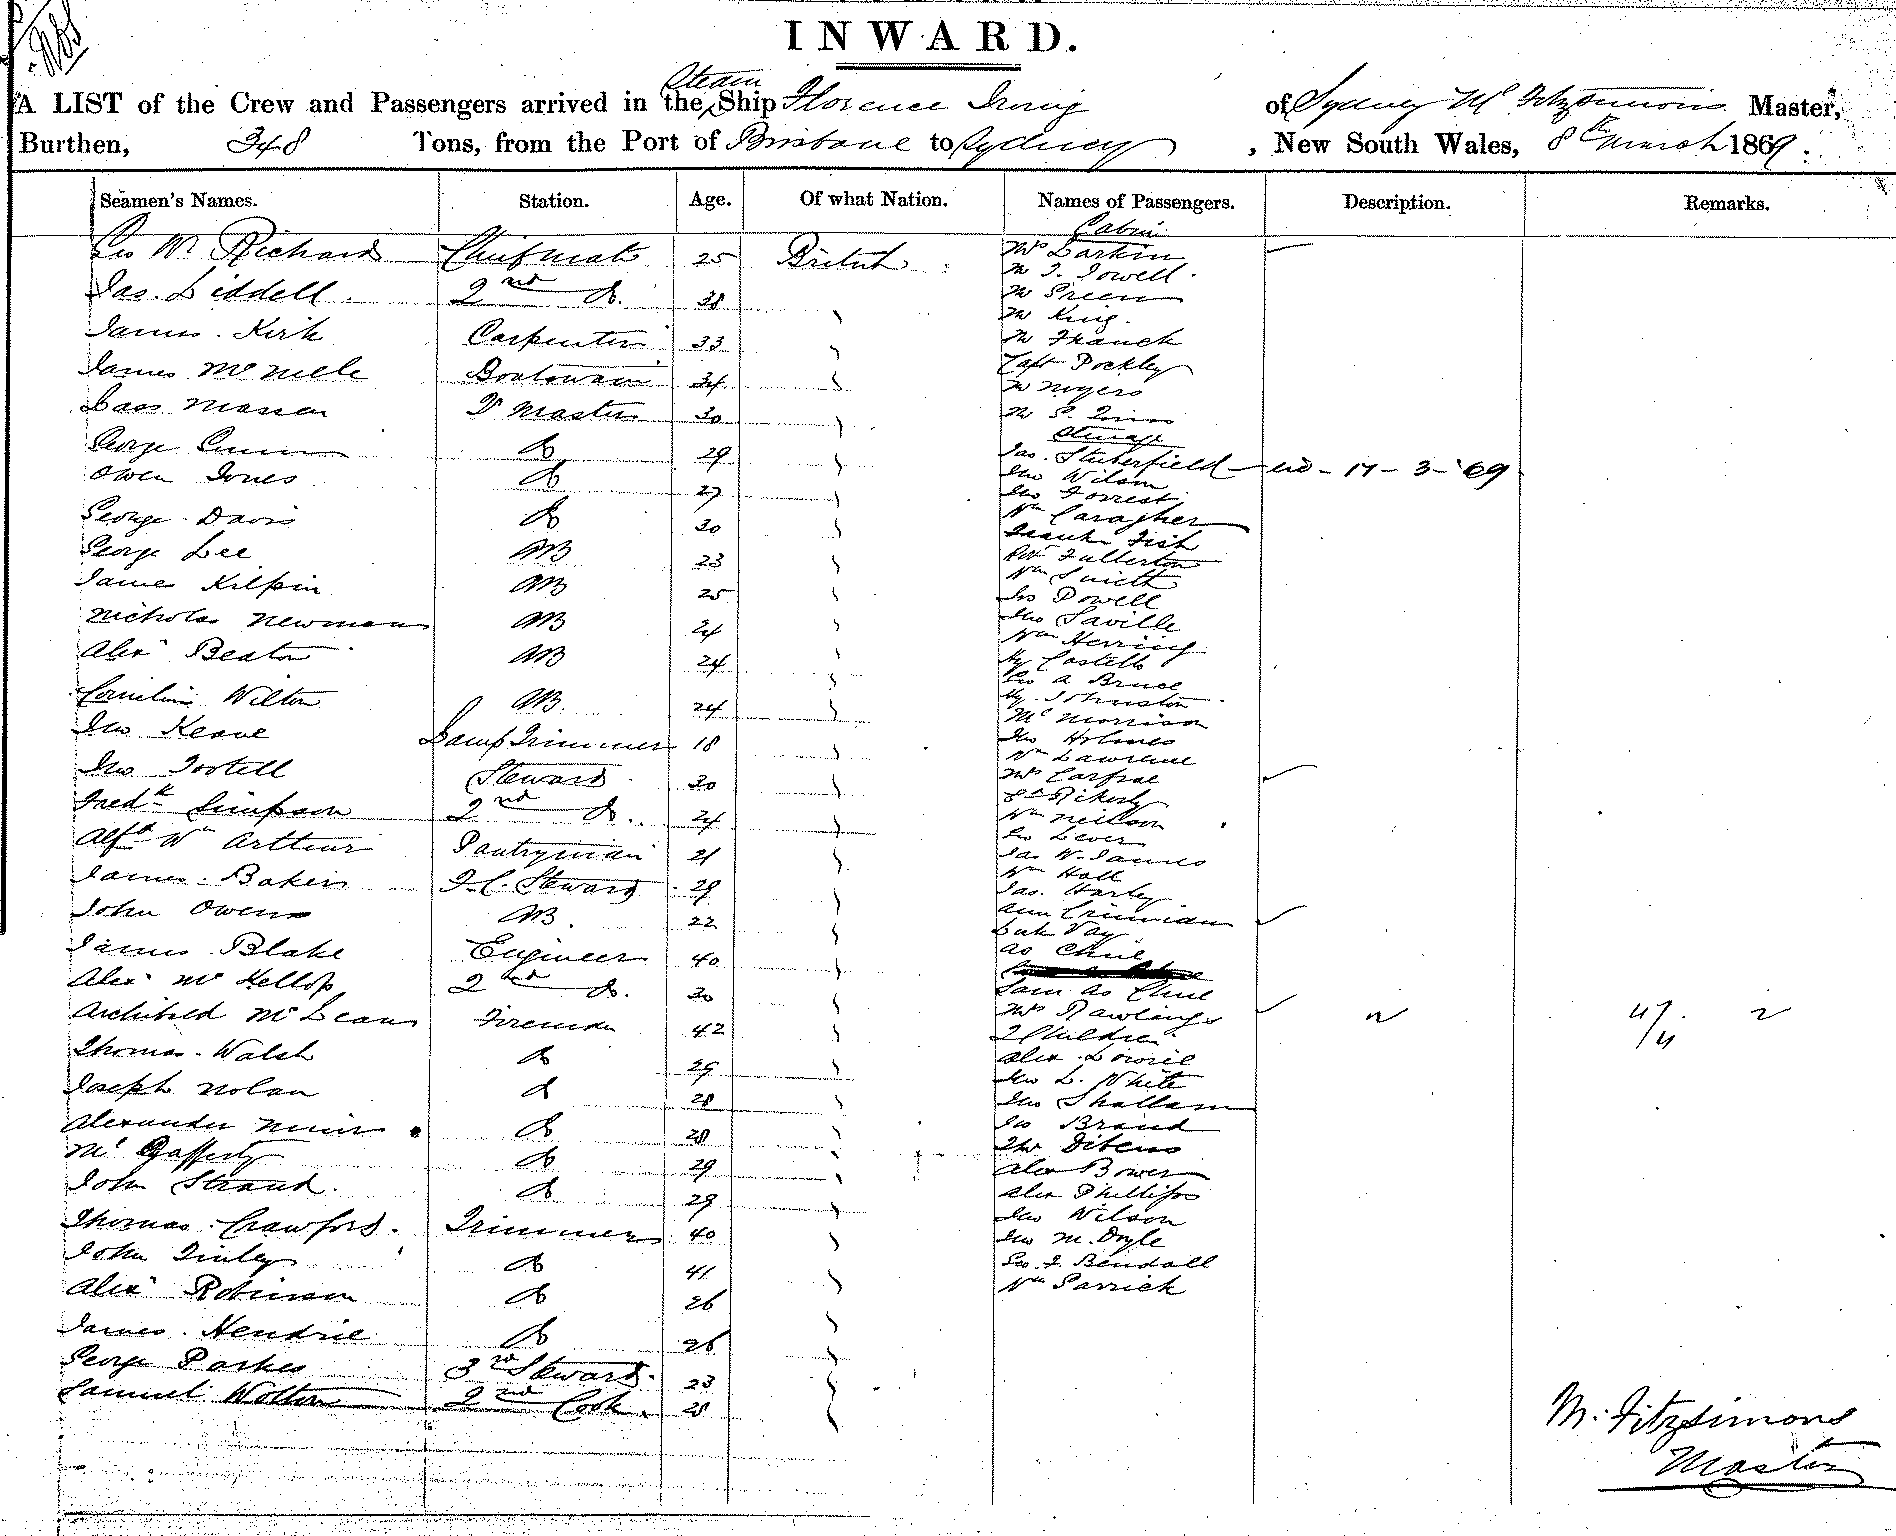 INWARD.
A LIST of the Crew and Passengers arrived in the Steam Ship Florence Irving of Sydney M Fitzsimons Master,
Burthen, 348 Tons, from the Port of Brisbane to Sydney, New South Wales, 8th March 1869.
Seamen's Names. Station. Age. Of what Nation. Names of Passengers. Description. Remarks.
Geo W. Richard Chief mate 25 British
Jas. Liddell 2nd Do. 38
James Kirk Carpenter 33
James McNiele Boatswain 34
Laos Massen Qr Master 30
George Do 29
Owen Jones Do 27
George Davis Do 30
George Lee AB 23
James Kilpin AB 25
Nicholas Newman AB 24
Alexr Beaton AB 24
Cornelius Wilton AB. 24
Jno Keane Lamp Trimmer 18
Jno Tootell Steward 30
Fredk Simpson 2nd Do. 24
Alfd Wm Arthur Pantryman 21
James Baker F.C. Steward 29
John Owens AB. 22
James Blake Engineer 40
Alexr McKellop 2nd Do. 30
Archibald McLean Fireman 42
Thomas Walsh Do 29
Joseph Nolan Do 28
Alexander Do 28
Mc Gafferty Do 29
John Strand. Do 29
Thomas Crawford. Trimmer 40
John Finley Do 41
Alexr Robinson Do 26
James Hendrie Do 26
George Parkes 3rd Steward. 23
Samuel Wolton 2nd Cook. 28
Cabin
Mrs Larkin
M T. Towell.
M Green
M King.
M Franck
Capt Pockley
M Moyers
M P.
Steerage
Jas. Stuberfield 17-3-'69
Jno Wilson
Jno Forrest
Wm Caragher
Frank Fish
Fullerton
Wm Smith
Jno Powell
Jno Saville
Wm Herring
Hy Costello
Geo A Bruce
Hy. Johnston
Mc Morrison
Jno Holmes
Wm Lawrence
Mrs Carfrae
Wm Neilson
Geo Lever
Jas W. James
Wm Hall
Jas. Harley
Ann Crinnian
as Chue
Sam as Chue
Mrs Rawlings
2 Children
Alex Lowrie
Jno L. White
Jno Shallam
Jno Braid
Alex Bower
Alex Phillips
Jno Wilson
Jno M. Doyle
Geo. F. Bendall
Wm Garrick
M. Fitzsimons
Master